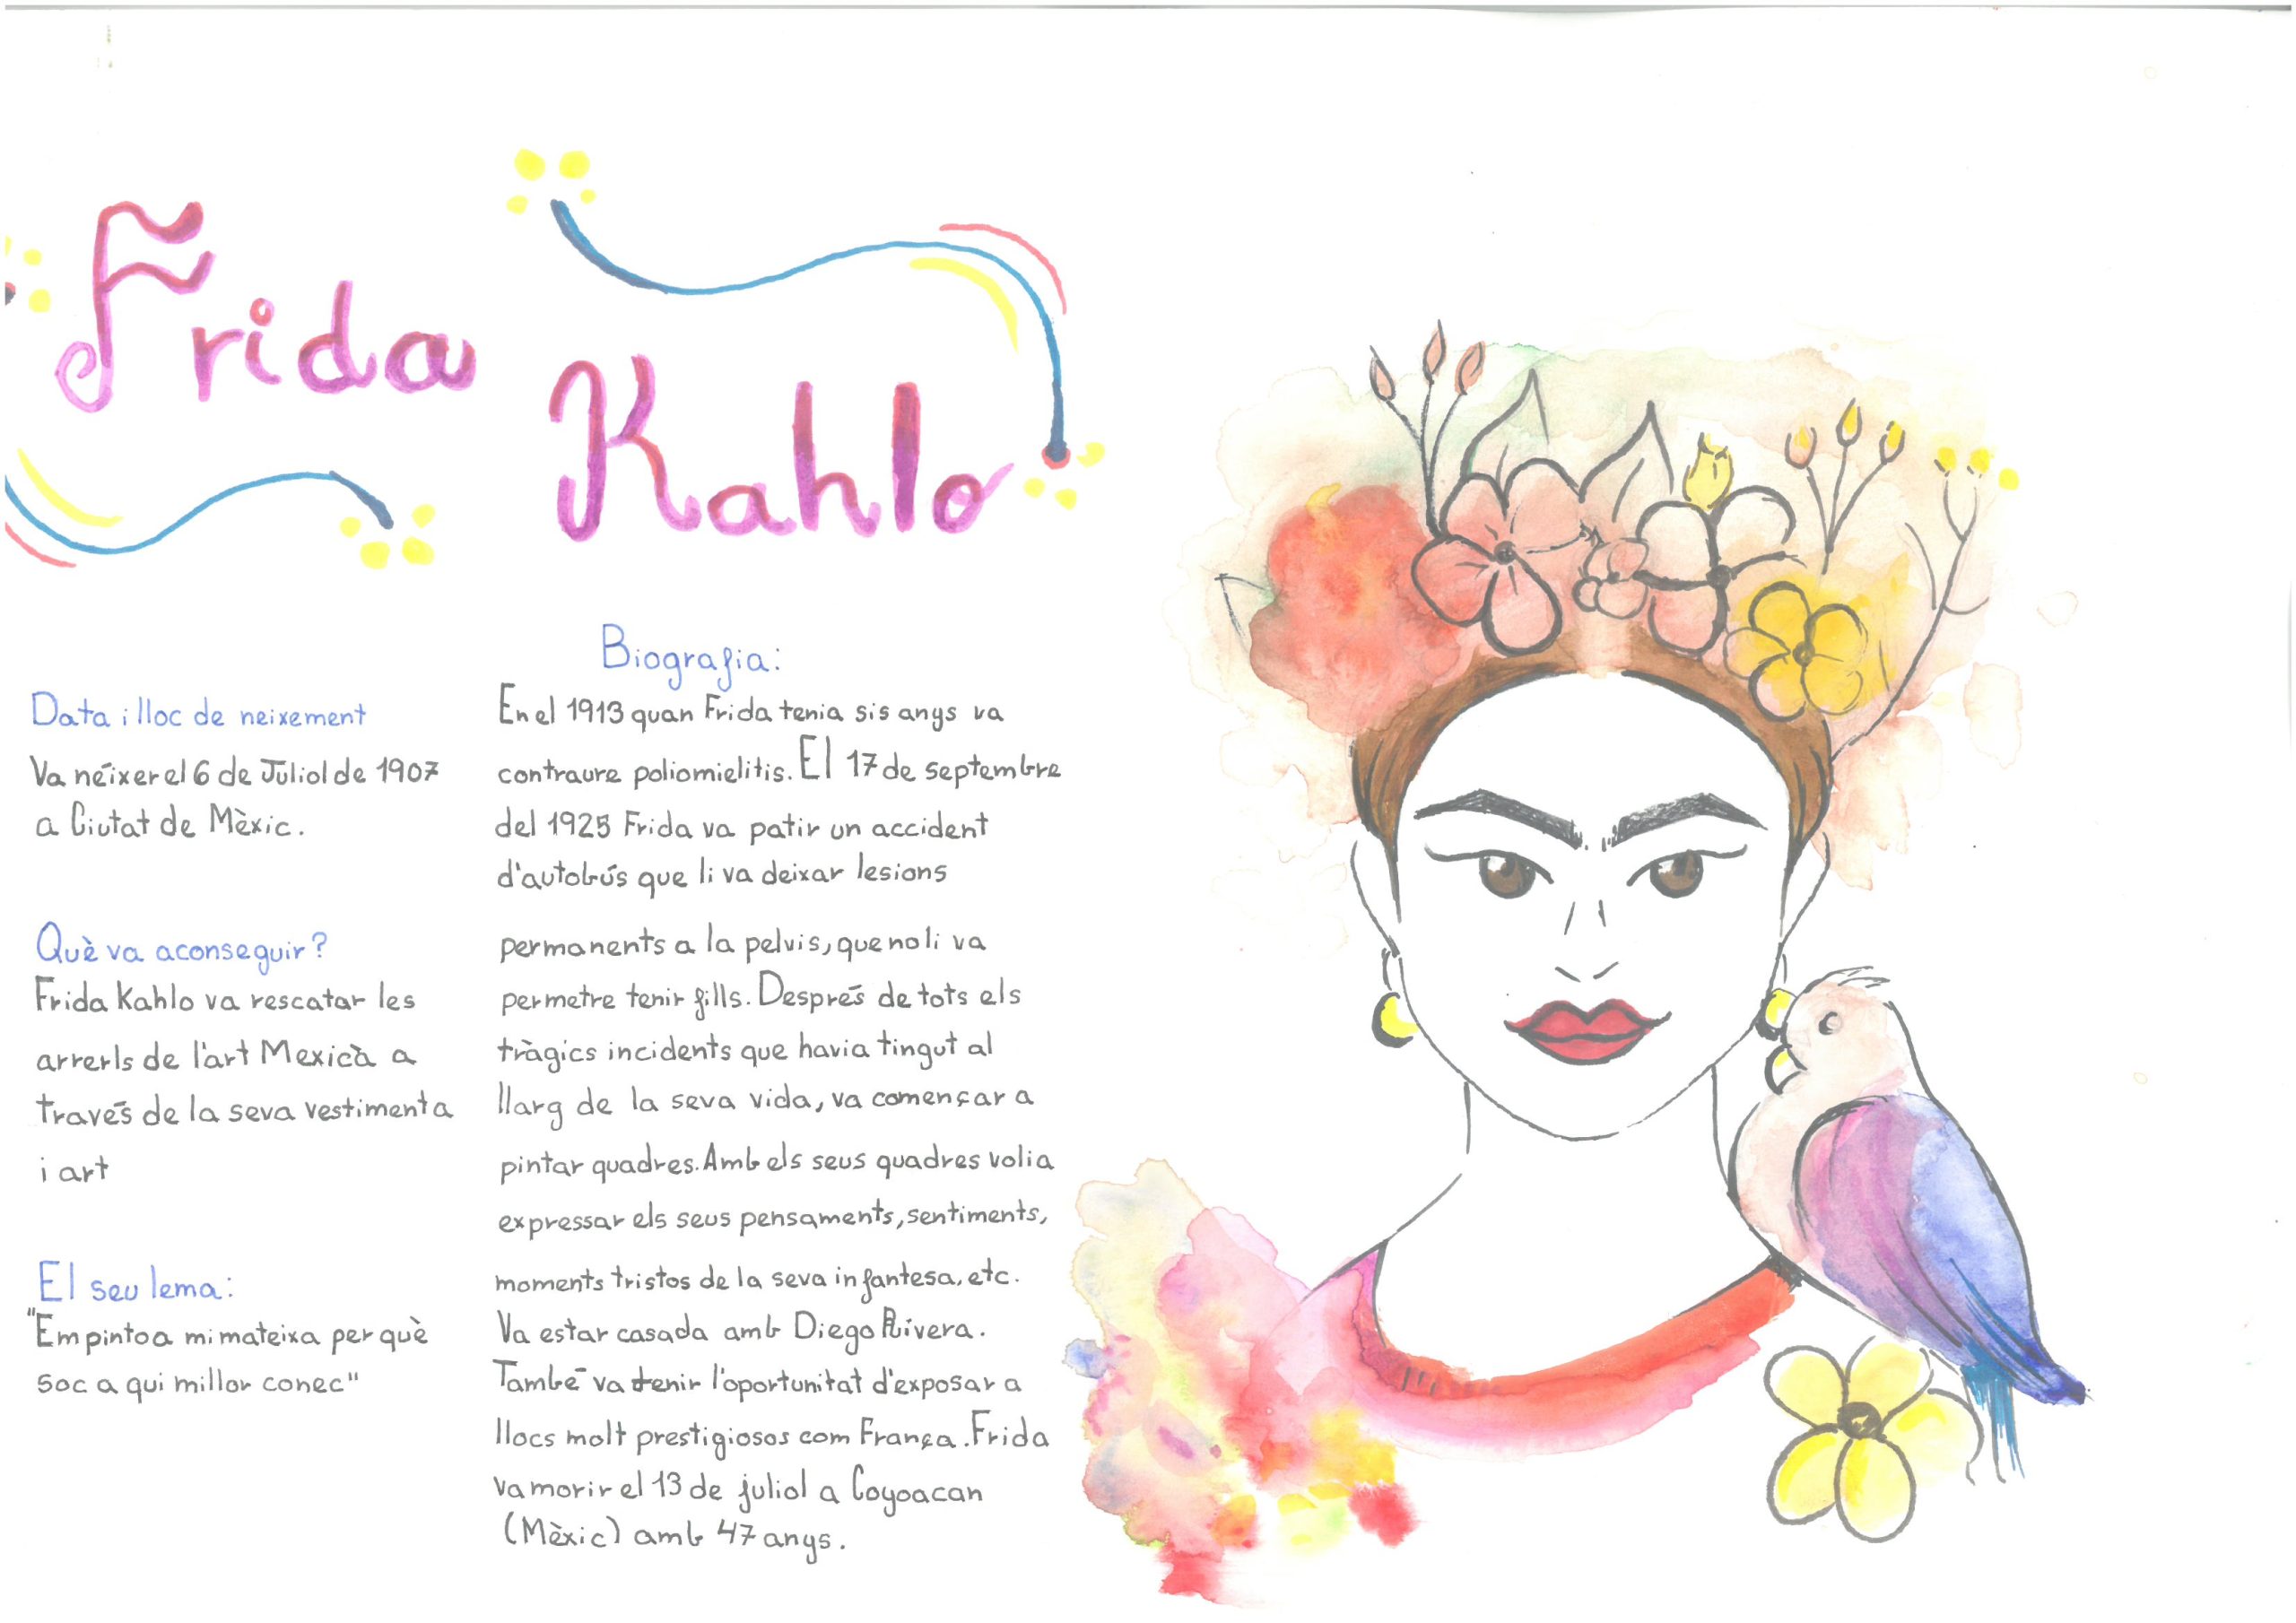 Frida
Kahlo
Data i lloc de neixement
Va néixer el 6 de Juliol de 1907
a Ciutat de Mèxic.
Què va aconseguir?
Frida Kahlo va rescatar les
arrerls de l'art Mexicà a
través de la seva vestimenta
i art
El seu lema:
"Em pinto a mi mateixa per què
soc a qui millor conec"
Biografia:
En el 1913 quan Frida tenia sis anys va
contraure poliomielitis. El 17 de septembre
del 1925 Frida va patir un accident
d'autobús que li va deixar lesions
permanents a la pelvis, que no li va
permetre tenir fills. Després de tots els
tràgics incidents que havia tingut al
llarg de la seva vida, va començar a
pintar quadres. Amb els seus quadres volia
expressar els seus pensaments, sentiments,
moments tristos de la seva infantesa, etc.
Va estar casada amb Diego Rivera.
També va tenir l'oportunitat d'exposar a
llocs molt prestigiosos com França. Frida
va morir el 13 de juliol a Coyoacan
(Mèxic) amb 47 anys.